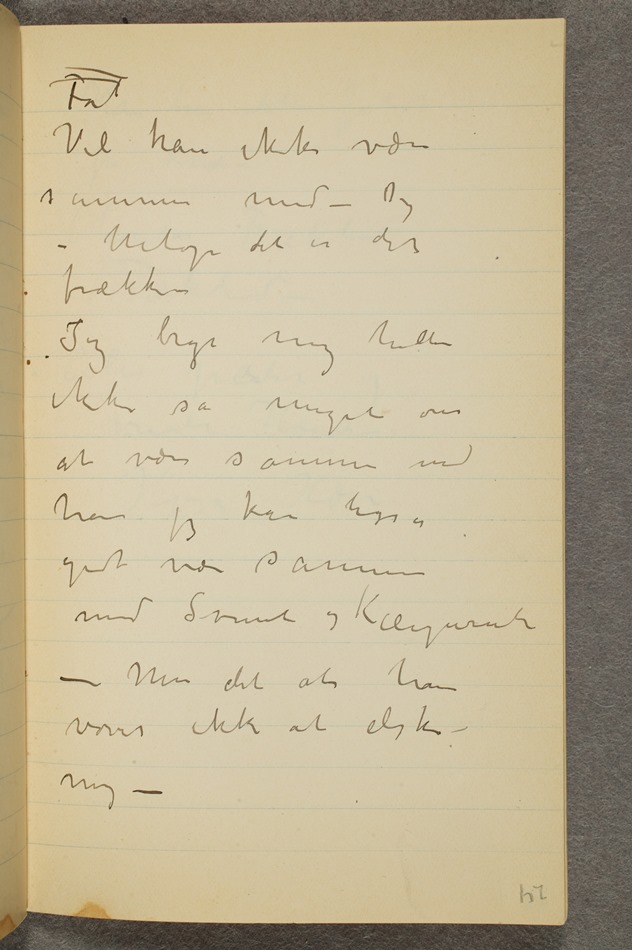 Fat
Vil han ikke være
sammen med – Dig
– Netop det er det
frække
Jeg bryr mig heller
ikke så meget om
at være sammen med
ham jeg kan ligså
godt være sammen
med Svend og
– Men det at han
vover ikke at elske –
mig –